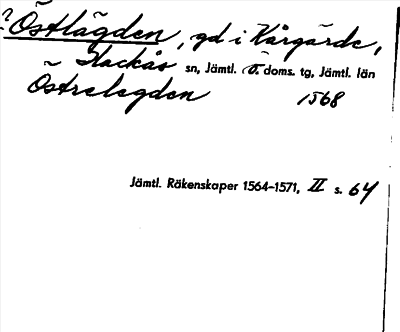 ? Östlägden, gd i Kårgärde,
Hackås sn, Jämtl. ö. doms. tg, Jämtl. län
Östrelegden 1568
Jämtl. Räkenskaper 1564-1571, II s. 64